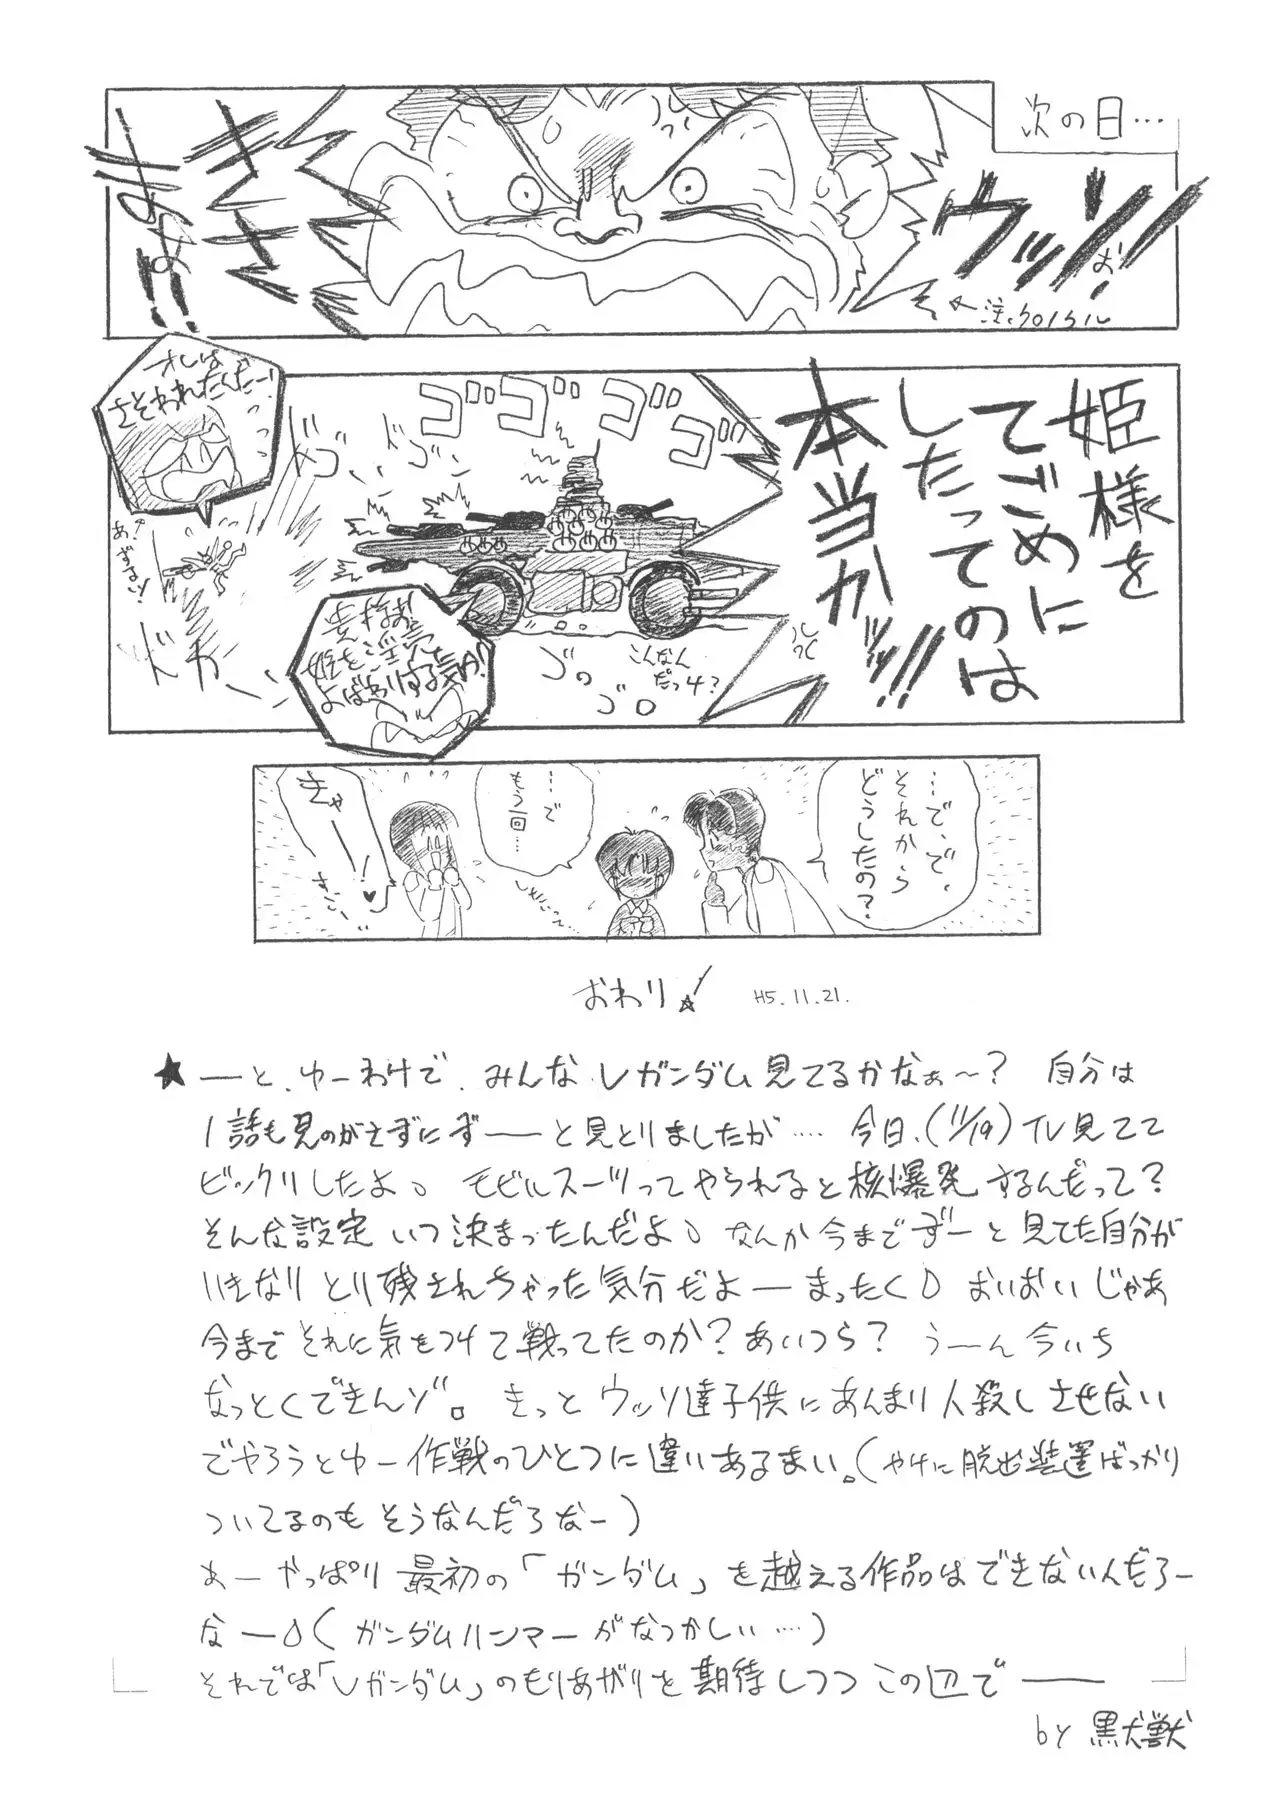 次の日…
ウッソ!!
きさま
まぁ!!
注.クロノクル
姫様を
てごめに
したってのは
本当か!!!
ゴゴゴゴ
オレは
さそわれたんだー!
ドゴ
ドカ
ゴロ
ゴロ
こんなん
だっけ?
…で、で、
それから
どうしたの?
…で
もう一回…
きゃー!
すごーい
おわり!
H5.11.21.
★ーと、ゆーわけで、みんなVガンダム見てるかなぁ〜? 自分は
1話も見のがさずにずーーと見とりましたが…. 今日、(11/19)TV見てて
ビックリしたよ。 モビルスーツってやられると核爆発するんだって?
そんな設定いつ決まったんだよ。なんか今までずーと見てた自分が
いきなりとり残されちゃった気分だよーまったく。 おいおいじゃあ
今までそれに気をつけて戦ってたのか?あいつら? うーん今いち
なっとくできんゾ。きっとウッソ達子供にあんまり人殺しさせない
でやろうとゆー作戦のひとつに違いあるまい。(やけに脱出装置ばっかり
ついてるのもそうなんだろなー)
あーやっぱり最初の「ガンダム」を越える作品はできないんだろー
なー。(ガンダムハンマーがなつかしい…)
それでは「Vガンダム」のもりあがりを期待しつつこの辺でーー
by 黒犬獣